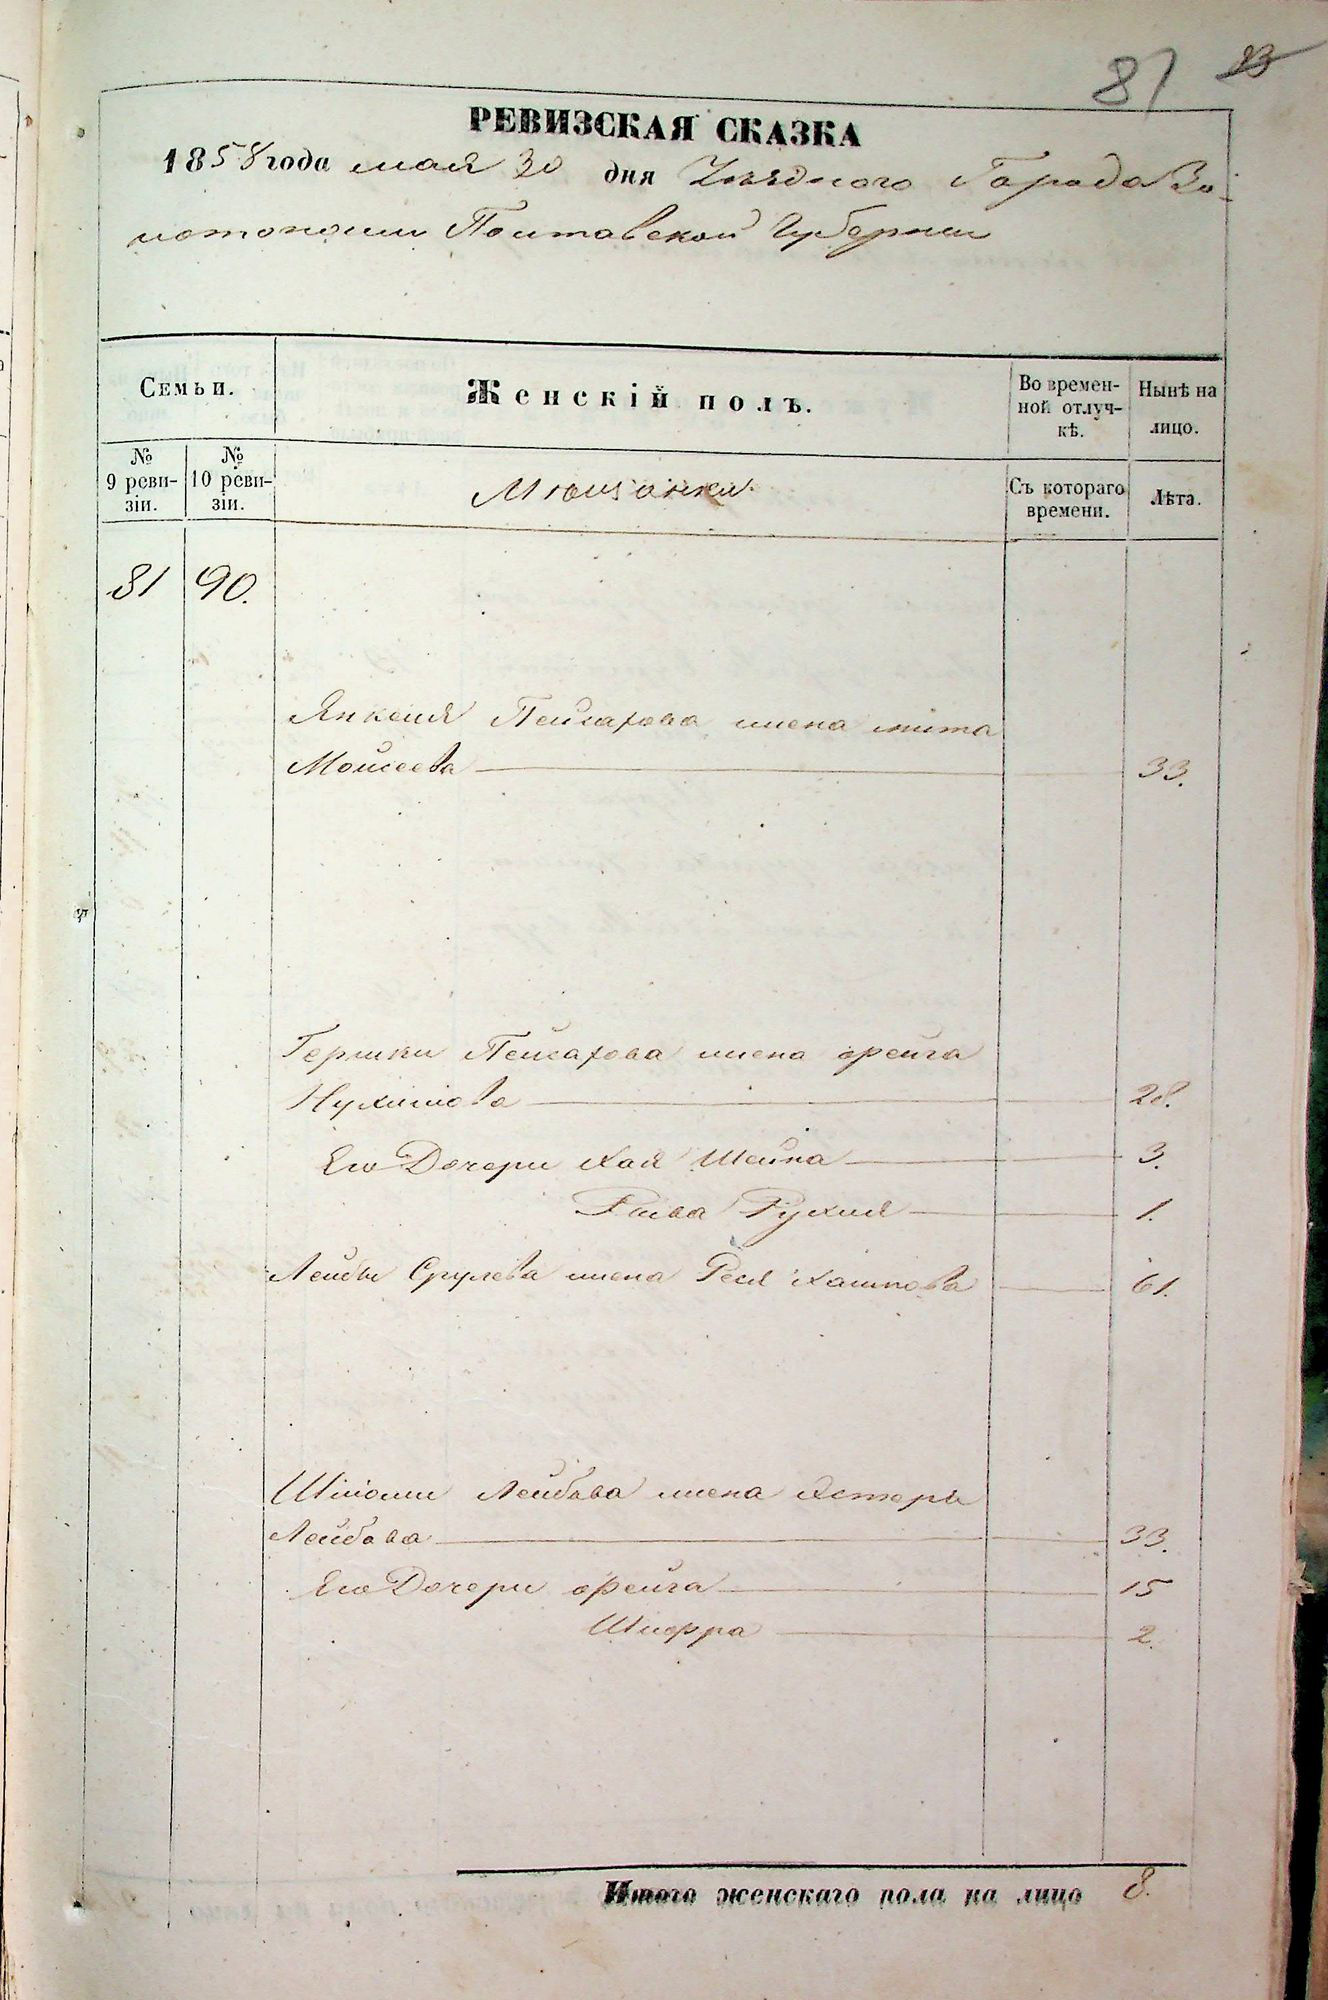 81 23
РЕВИЗСКАЯ СКАЗКА
1858 года мая 30 дня Уѣзднаго Города Зо-
лотоноши Полтавской Губернии
Семьи.
Женскій полъ.
Во времен-
ной отлуч-
кѣ.
Нынѣ на
лицо.
№
9 реви-
зіи.
№
10 реви-
зіи.
Мѣщанки
Съ котораго
времени.
Лѣта.
81 90.
Янкеля Пейсахова жена
Моисеева 33.
Гершки Пейсахова жена Фрейга
Нухимова 28.
Его Дочери Хая Шейна 3.
Рыва Рухля 1.
Лейбы Срулева жена Песя Хаимова 61.
Шліомы Лейбова жена Естеръ
Лейбова 33.
Его Дочери Фрейга 15
Шифра 2.
Итого женскаго пола на лицо 8.